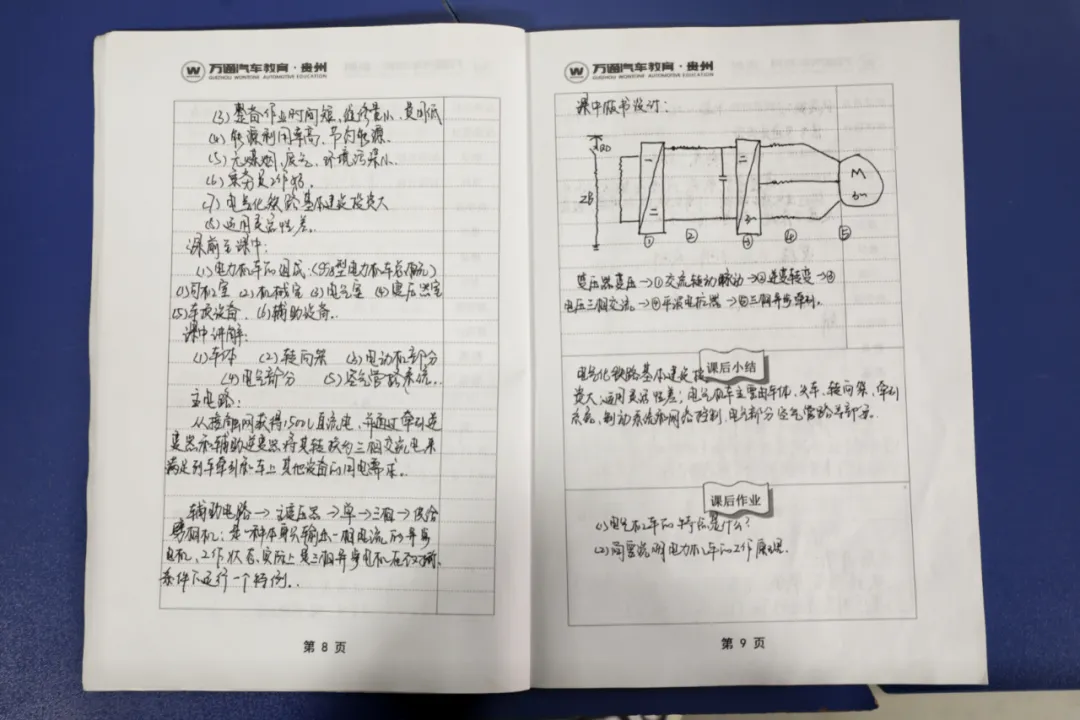 万通汽车教育·贵州
GUIZHOU WONTONE AUTOMOTIVE EDUCATION
(3) 整备作业时间短，维修量小，费用低
(4) 能源利用率高、节约能源.
(5) 无煤烟、废气、环境污染小.
(6) 乘务员工作
(7) 电气化铁路基本建设投资大
(8) 运用灵活性差.
课前至课中：
(1) 电力机车的组成：(型电力机车总
(1)司机室 (2)机械室 (3)电气室 (4)变压器室
(5)车顶设备. (6)辅助设备.
课中讲解：
(1)车体 (2)转向架 (3)电动机部分
(4)电气部分 (5)空气管路系统.
主电路：
从接触网获得1500V直流电，并通过牵引逆
变器和辅助逆变器将其转换为三相交流电.来
满足列车牵引和车上其他设备的用电需求.
辅助电路→主变压器→单→三相→供给
劈相机：是一种本身只输入一相电流的异步
电机、工作状态，实际上是三相异步电机在不对称
条件下运行一个特例.
第 8 页
万通汽车教育·贵州
GUIZHOU WONTONE AUTOMOTIVE EDUCATION
课中板书设计：
M
① ② ③ ④ ⑤
变压器变压→①交流转动脉动→②逆变转变→③
电压三相交流.→④平波电抗器→⑤三相异步牵引.
课后小结
电气化铁路基本建设投
资大；运用灵活性差；电气机车主要由车体、转向架、牵引
系统、制动系统和网络控制、电气部分空气管路等部分.
课后作业
(1)电气机车的特点是什么？
(2)简要说明电力机车的工作原理.
第 9 页